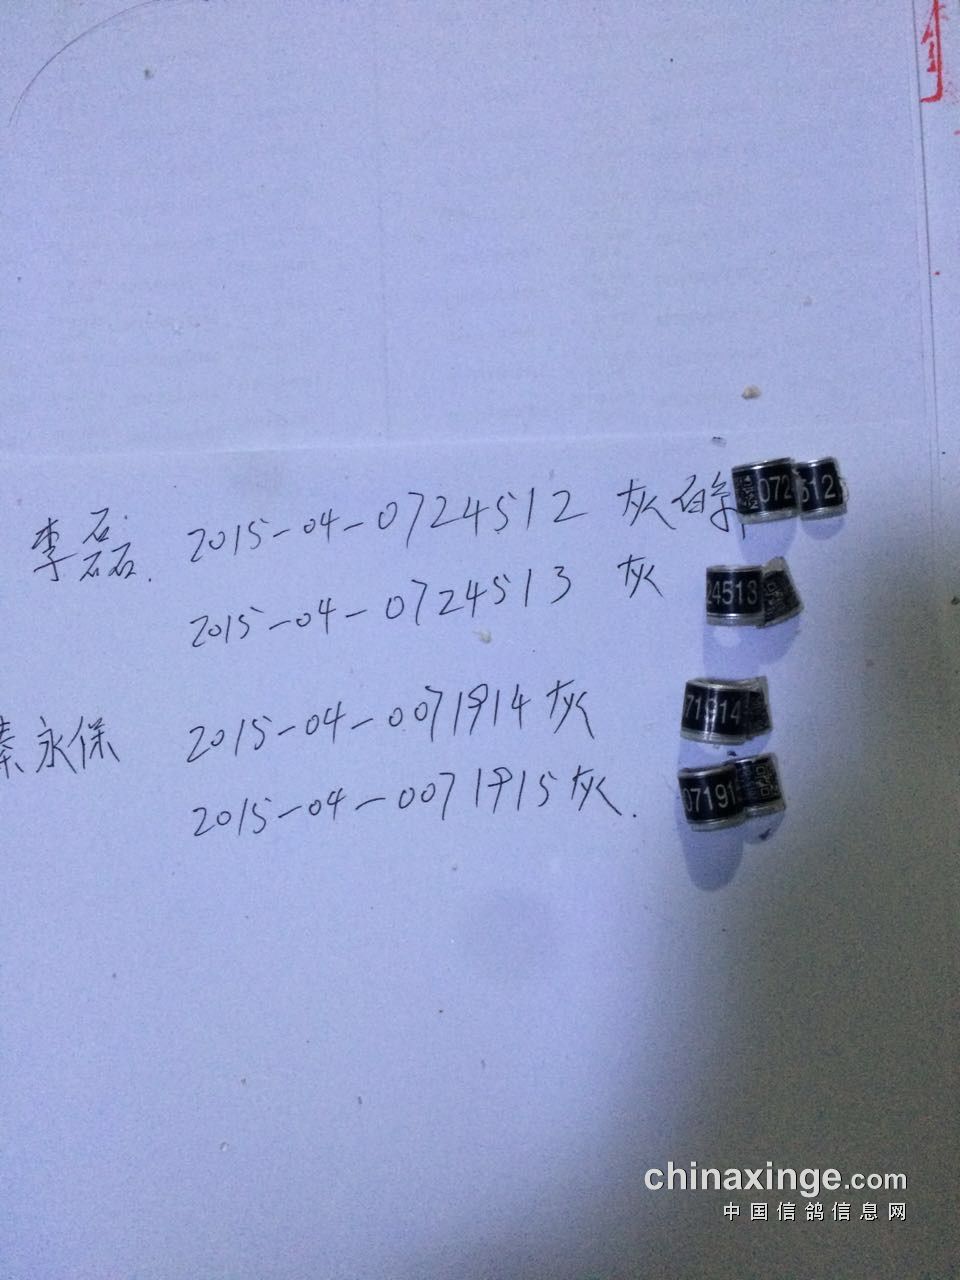 李磊. 2015-04-0724512 灰白条
072 512
2015-04-0724513 灰
24513
秦永保 2015-04-0071914 灰
71914
2015-04-0071915 灰.
07191
chinaxinge.com
中国信鸽信息网